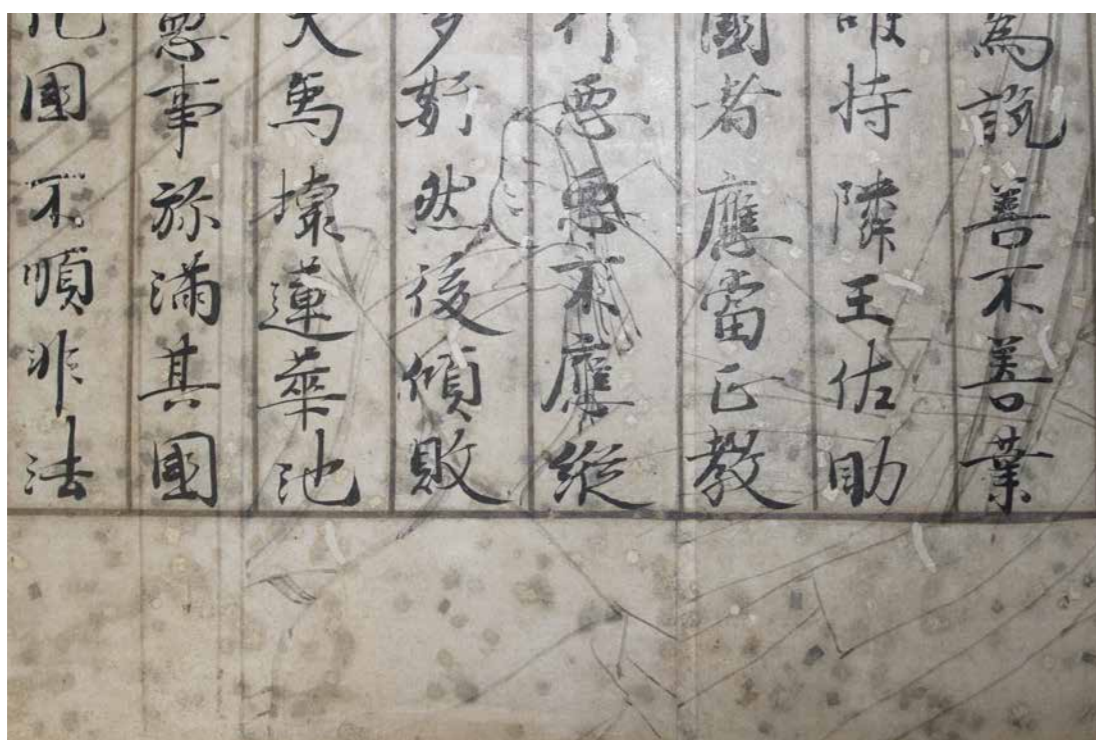 為說善不善業
持隣王佐助
國者應當正教
行惡惡不應縱
多然後傾敗
大象壞蓮華池
惡事弥滿其國
化國不順非法